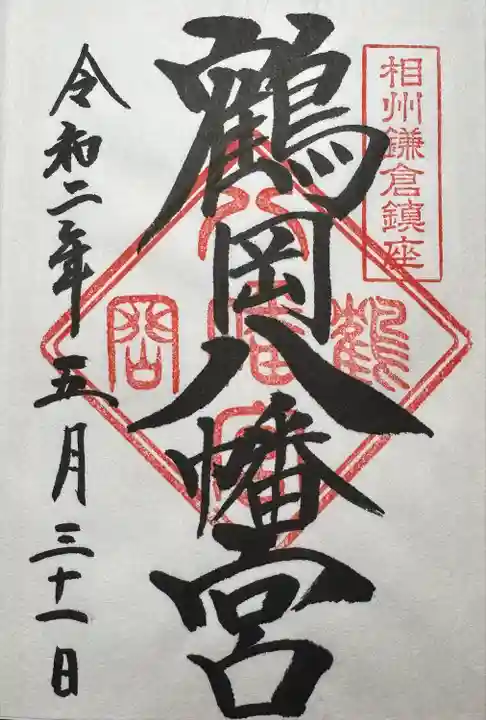 相州鎌倉鎮座
鶴岡八幡宮
鶴
岡
八幡宮
令和二年五月三十一日